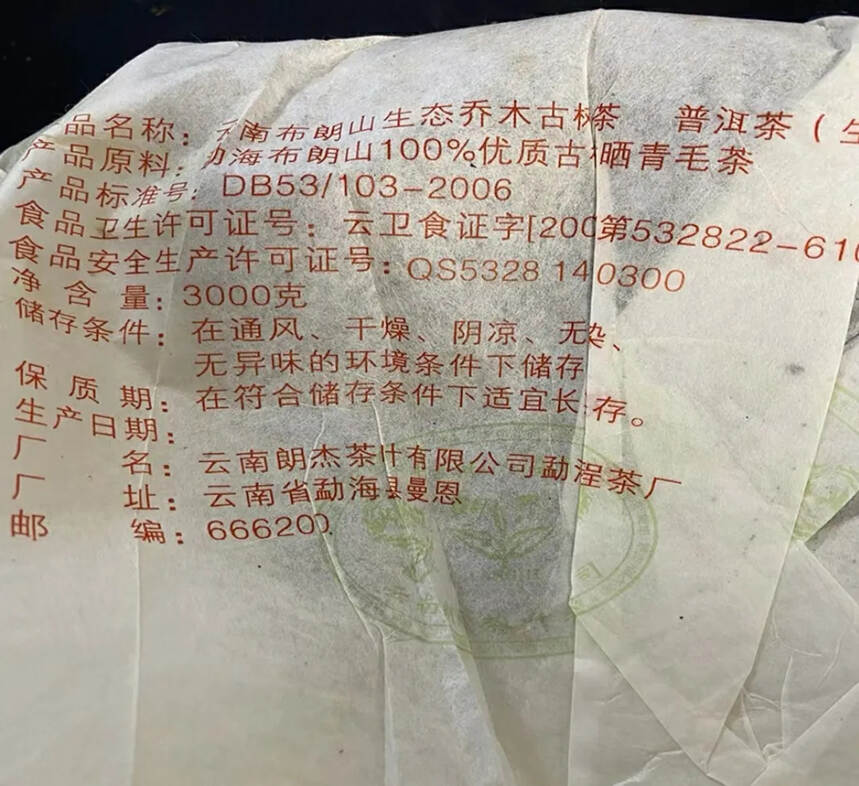 品名称：云南布朗山生态乔木古树茶 普洱茶（生
产品原料：勐海布朗山100%优质古树晒青毛茶
产品标准号：DB53/103-2006
食品卫生许可证号：云卫食证字[200第532822-610
食品安全生产许可证号：QS5328 14 0300
净含量：3000克
储存条件：在通风、干燥、阴凉、无杂、
无异味的环境条件下储存
保质期：在符合储存条件下适宜长存。
生产日期：
厂名：云南朗杰茶叶有限公司勐涅茶厂
厂址：云南省勐海县曼恩
邮编：666200